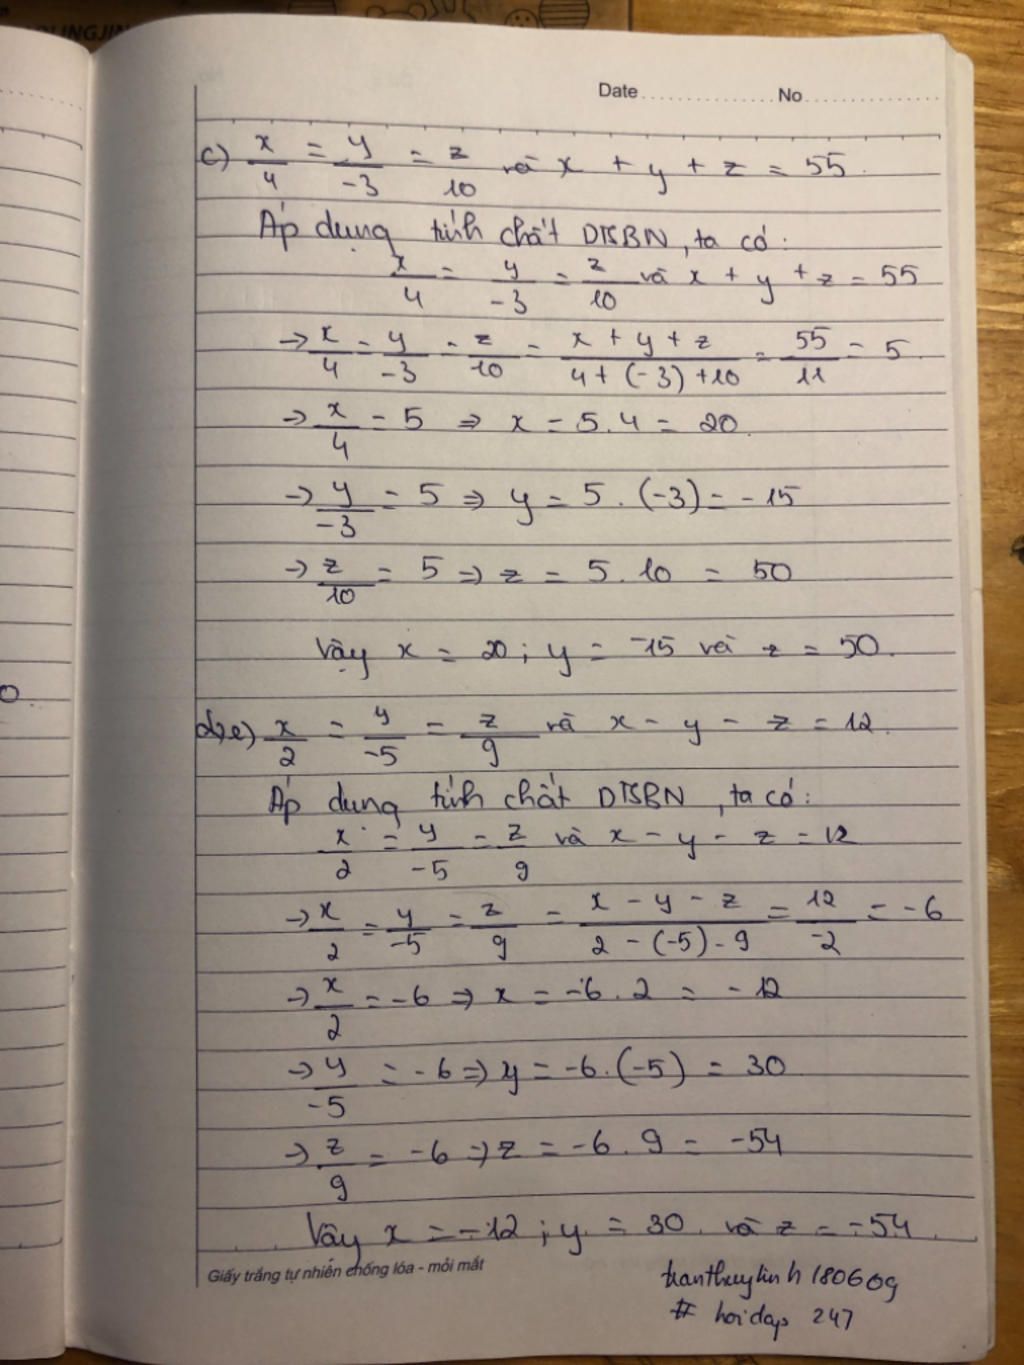 OUNGJIN
Date No
c) x/4 = y/-3 = z/10 và x + y + z = 55.
Áp dụng tính chất DTSBN, ta có:
x/4 = y/-3 = z/10 và x + y + z = 55
→ x/4 = y/-3 = z/10 = x + y + z/4 + (-3) + 10 = 55/11 = 5.
→ x/4 = 5 ⇒ x = 5.4 = 20.
→ y/-3 = 5 ⇒ y = 5.(-3) = -15
→ z/10 = 5 ⇒ z = 5.10 = 50
Vậy x = 20; y = -15 và z = 50.
e) x/2 = y/-5 = z/9 và x - y - z = 12.
Áp dụng tính chất DTSBN, ta có:
x/2 = y/-5 = z/9 và x - y - z = 12
→ x/2 = y/-5 = z/9 = x - y - z/2 - (-5) - 9 = 12/-2 = -6
→ x/2 = -6 ⇒ x = -6.2 = -12
→ y/-5 = -6 ⇒ y = -6.(-5) = 30
→ z/9 = -6 ⇒ z = -6.9 = -54
Vậy x = -12; y = 30 và z = -54.
Giấy trắng tự nhiên chống lóa - mỏi mắt
tranthuylinh180609
# hoidap 247